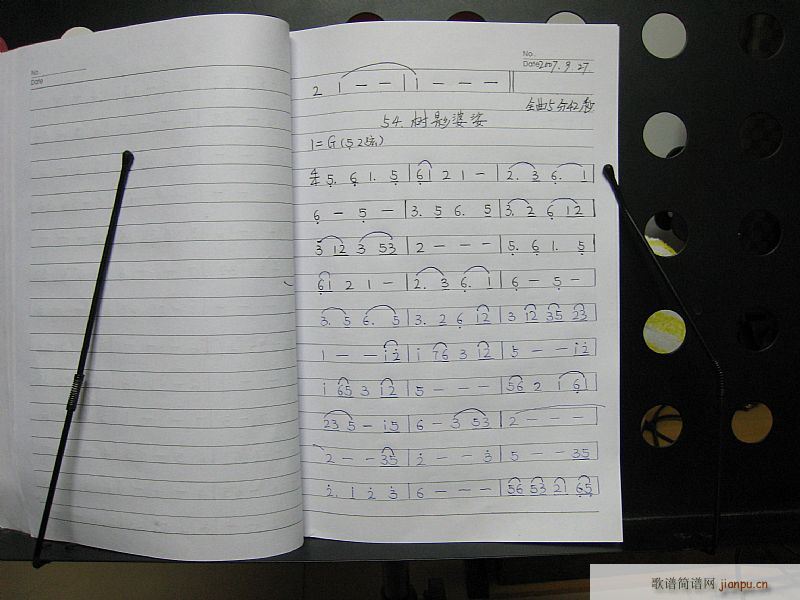 No.
Date
No.
Date 2007.9.27.
2 | i - - | i - - - ‖
全曲5分42秒
54. 树影婆娑
1=G(5 2弦)
4/4 5. 6 1. 5 | 61 2 1 - | 2. 3 6. 1
6 - 5 - | 3. 5 6. 5 | 3. 2 6 12
3 12 3 53 | 2 - - - | 5. 6 1. 5
61 2 1 - | 2. 3 6. 1 | 6 - 5 -
3. 5 6. 5 | 3. 2 6 12 | 3 12 35 23
1 - - i2 | i 76 3 12 | 5 - - i2
i 65 3 12 | 5 - - - | 56 2 1 61
23 5 - i5 | 6 - 3 53 | 2 - - -
2 - - 35 | 2 - - 3 | 5 - - 35
2. i 2 3 | 6 - - - | 56 53 21 65
歌谱简谱网 jianpu.cn